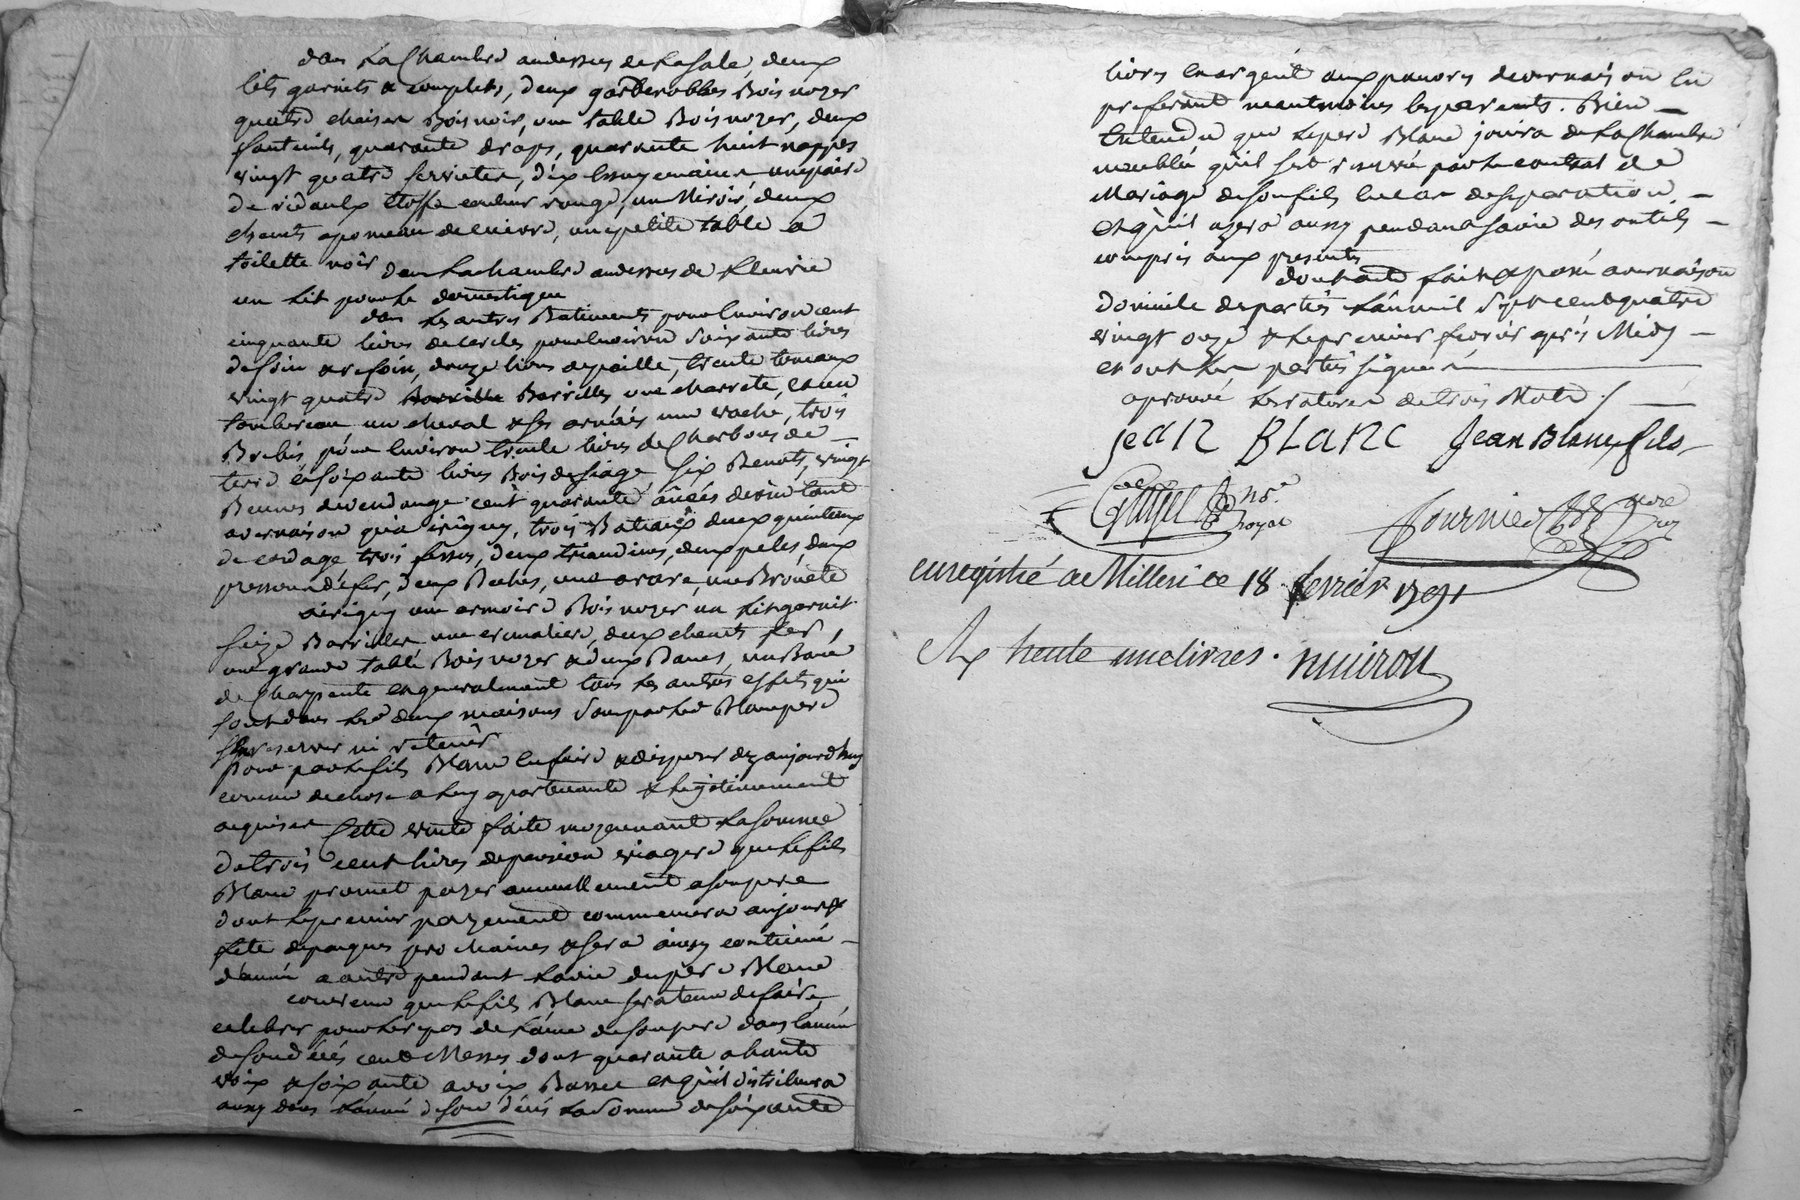 dans La Chambre audessus de La Sale, deux
lits garnits & complets, deux garderobbes Bois noyer
quatre chaises Bois noir, une table Bois noyer, deux
fauteuils, quarante draps, quarante huit nappes
vingt quatre serviettes, dix essuy mains une paire
de rideaulx etoffe couleur rouge, un Miroir, deux
chenets a pomeau de cuivre, une petite table a
toilette noir dans La chambre audessus de
un Lit pour Le domestique
dans Les autres Batiments pour Environ cent
cinquante livres de cercles pour Environ Soixante livres
de foin & refoin, douze livres de paille, trente toneaux
vingt quatre Barrilles une charrete, et un
tombereau un cheval & ses arnéës une vache, trois
Brebis, pour Environ trente livres de Charbons de
terre & soixante livres Bois de siage Six Benots, vingt
Bennes de vendange cent quarante anées de vin tant
a vernaison qua irigny, trois deux quinteaux
de cordage trois fesses, deux triandines, deux peles, deux
pressons de fer, deux Baches, une arare, une Brouete
a irigny une armoire Bois noyer un Lit garnit
seize Barrilles une deux chenets fer,
une grande table Bois noyer & deux Bancs, un Banc
de Charpente et generalment tous Les autres effets qui
sont dans Les deux maisons Sans par Led Blanc pere
S'en reserver ni retenir
pour par Le fils Blanc En faire & disposer dez aujourdhuy
comme de chose a Luy apartenante & Legitimement
acquise Cette vente faite moyenant La somme
de trois cent livres de pension viagere que Le fils
Blanc promet payer annuellement a son pere
dont Le premier payement commencera au jour &
fete de paques prochaines & sera ainsy continué
d'année a autre pendant La vie du pere Blanc
convenu que Le fils Blanc sera tenu de faire
celebrer pour Le repos de L'ame de son pere dans l'année
de son décés cent Messes dont quarante a haute
voix & soixante a voix Basse et qu'il distribuera
aussy dans L'année de son décés La Somme de soixante
livres En argent aux pauvres de vernaison En
preferant neantmoins les parents. Bien
Entendu que Le pere Blanc jouira de La Chambre
meublée qu'il s'est reservé par Le contrat de
Mariage de son fils En cas de separation
et qu'il usera aussy pendant sa vie des outils
compris aux presents
dont acte fait & passé a vernaison
domicile des parties L'an mil Sept cent quatre
vingt onze & Le premier fevrier aprés Midy
et ont Les parties signé
aprouvé Les ratures de trois Mots ./.
jean BLANC Jean Blanc fils
no.re
royal
fournier
enregistré a Milleri ce 18 fevrier 1791
Rx trente une livres. muiron